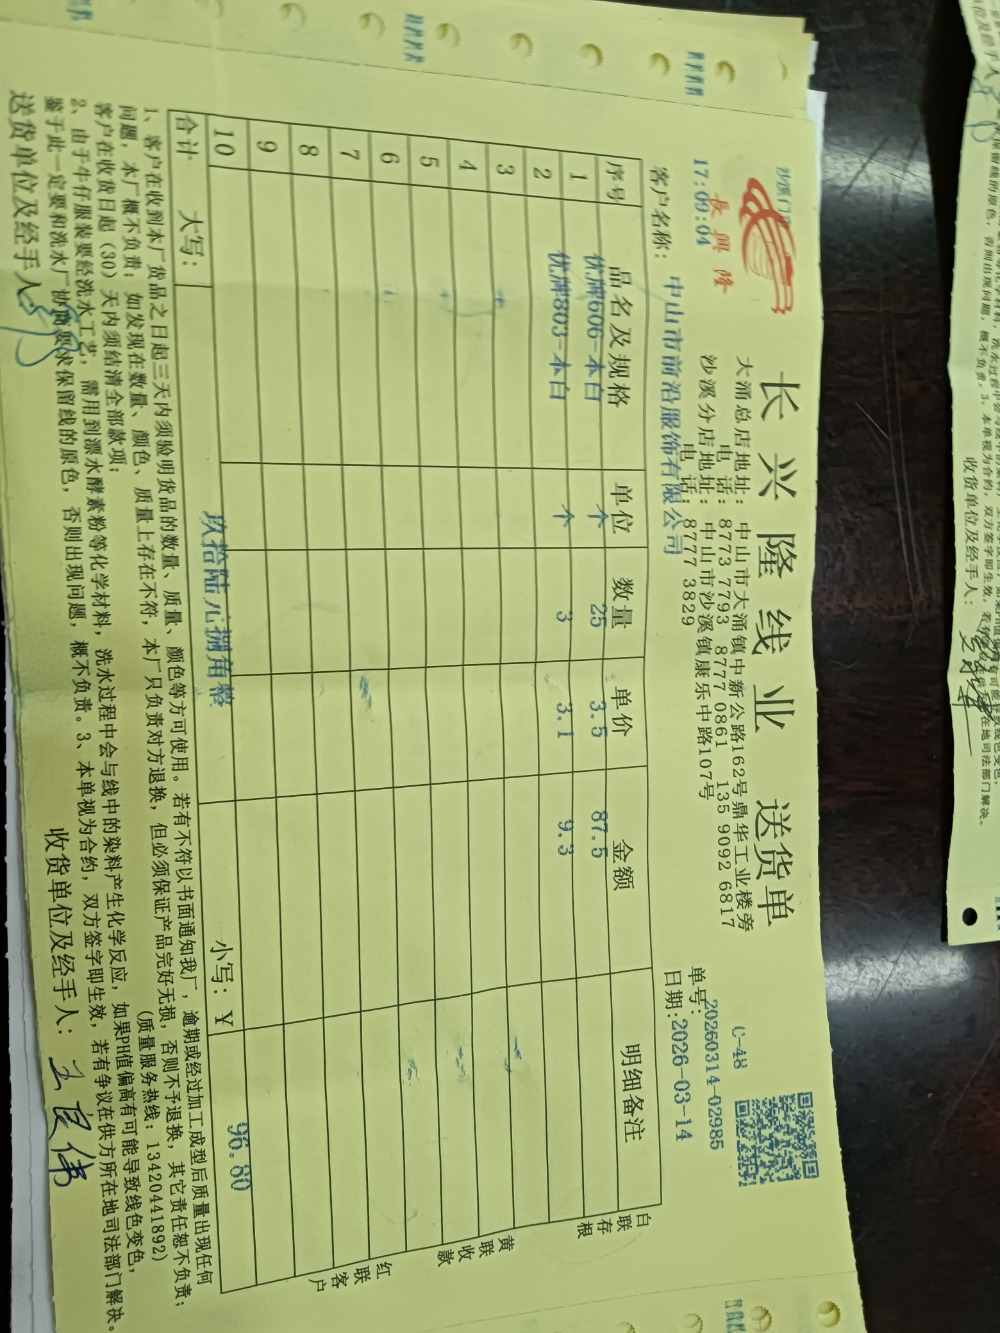 长兴隆线业 送货单
長興隆
17:09:04
大涌总店地址：中山市大涌镇中新公路162号鼎华工业楼旁
电 话：8773 7793 8777 0861 135 9092 6817
沙溪分店地址：中山市沙溪镇康乐中路107号
电 话：8777 3829
C-48
单号：20260314-02985
客户名称：中山市前沿服饰有限公司
日期：2026-03-14
序号 品名及规格 单位 数量 单价 金额 明细备注
1 优牌606-本白 个 25 3.5 87.5
2 优牌803-本白 个 3 3.1 9.3
3
4
5
6
7
8
9
10
合计 大写：玖拾陆元捌角整 小写：￥ 96.80
白联存根
黄联收款
红联客户
1、客户在收到本厂货品之日起三天内须验明货品的数量、质量、颜色等方可使用。若有不符以书面通知我厂，逾期或经过加工成型后质量出现任何
问题，本厂概不负责；如发现在数量、颜色、质量上存在不符，本厂只负责对方退换，但必须保证产品完好无损，否则不予退换，其它责任恕不负责；
客户在收货日起（30）天内须结清全部款项；
(质量服务热线：13420441892)
2、由于牛仔服装要经洗水工艺，需用到漂水酵素粉等化学材料，洗水过程中会与线中的染料产生化学反应，如果PH值偏高有可能导致线色变色，
鉴于此一定要和洗水厂协商要求保留线的原色，否则出现问题，概不负责。3、本单视为合约，双方签字即生效，若有争议在供方所在地司法部门解决。
送货单位及经手人
收货单位及经手人：王良伟
收货单位及经手人：